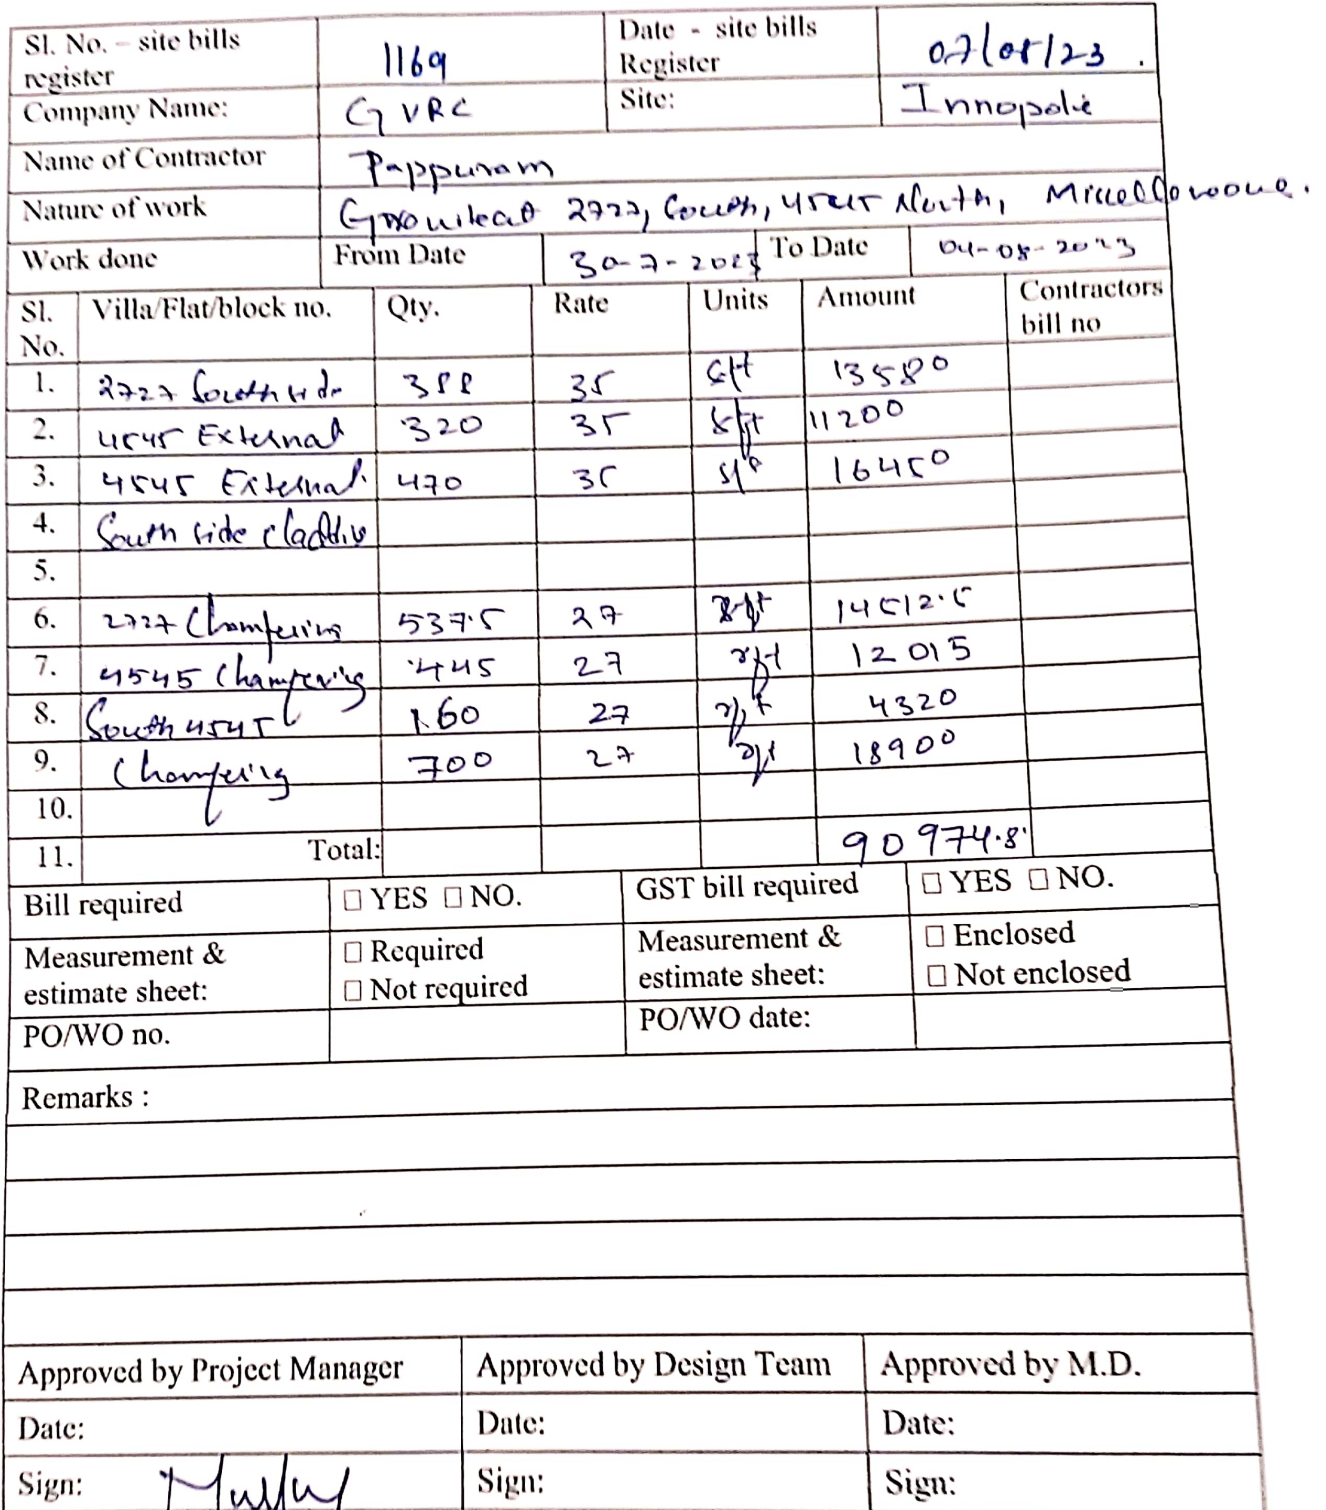 Sl. No. – site bills register 1169 Date - site bills Register 07/08/23.
Company Name: GVRC Site: Innopolis
Name of Contractor Pappuram
Nature of work 2727, South, 4545 North, Miscellaneous.
Work done From Date 30-7-2023 To Date 04-08-2023
Sl. No. Villa/Flat/block no. Qty. Rate Units Amount Contractors bill no
1. 2727 South side 388 35 sft 13580
2. 4545 External 320 35 sft 11200
3. 4545 External 470 35 sft 16450
4. South side
5.
6. 2727 Chamfering 537.5 27 rft 14512.5
7. 4545 Champering 445 27 rft 12015
8. South 4545 160 27 rft 4320
9. Chamfering 700 27 rft 18900
10.
11. Total: 90974.8
Bill required □ YES □ NO. GST bill required □ YES □ NO.
Measurement & estimate sheet: □ Required □ Not required Measurement & estimate sheet: □ Enclosed □ Not enclosed
PO/WO no. PO/WO date:
Remarks :
Approved by Project Manager Approved by Design Team Approved by M.D.
Date: Date: Date:
Sign: Sign: Sign: